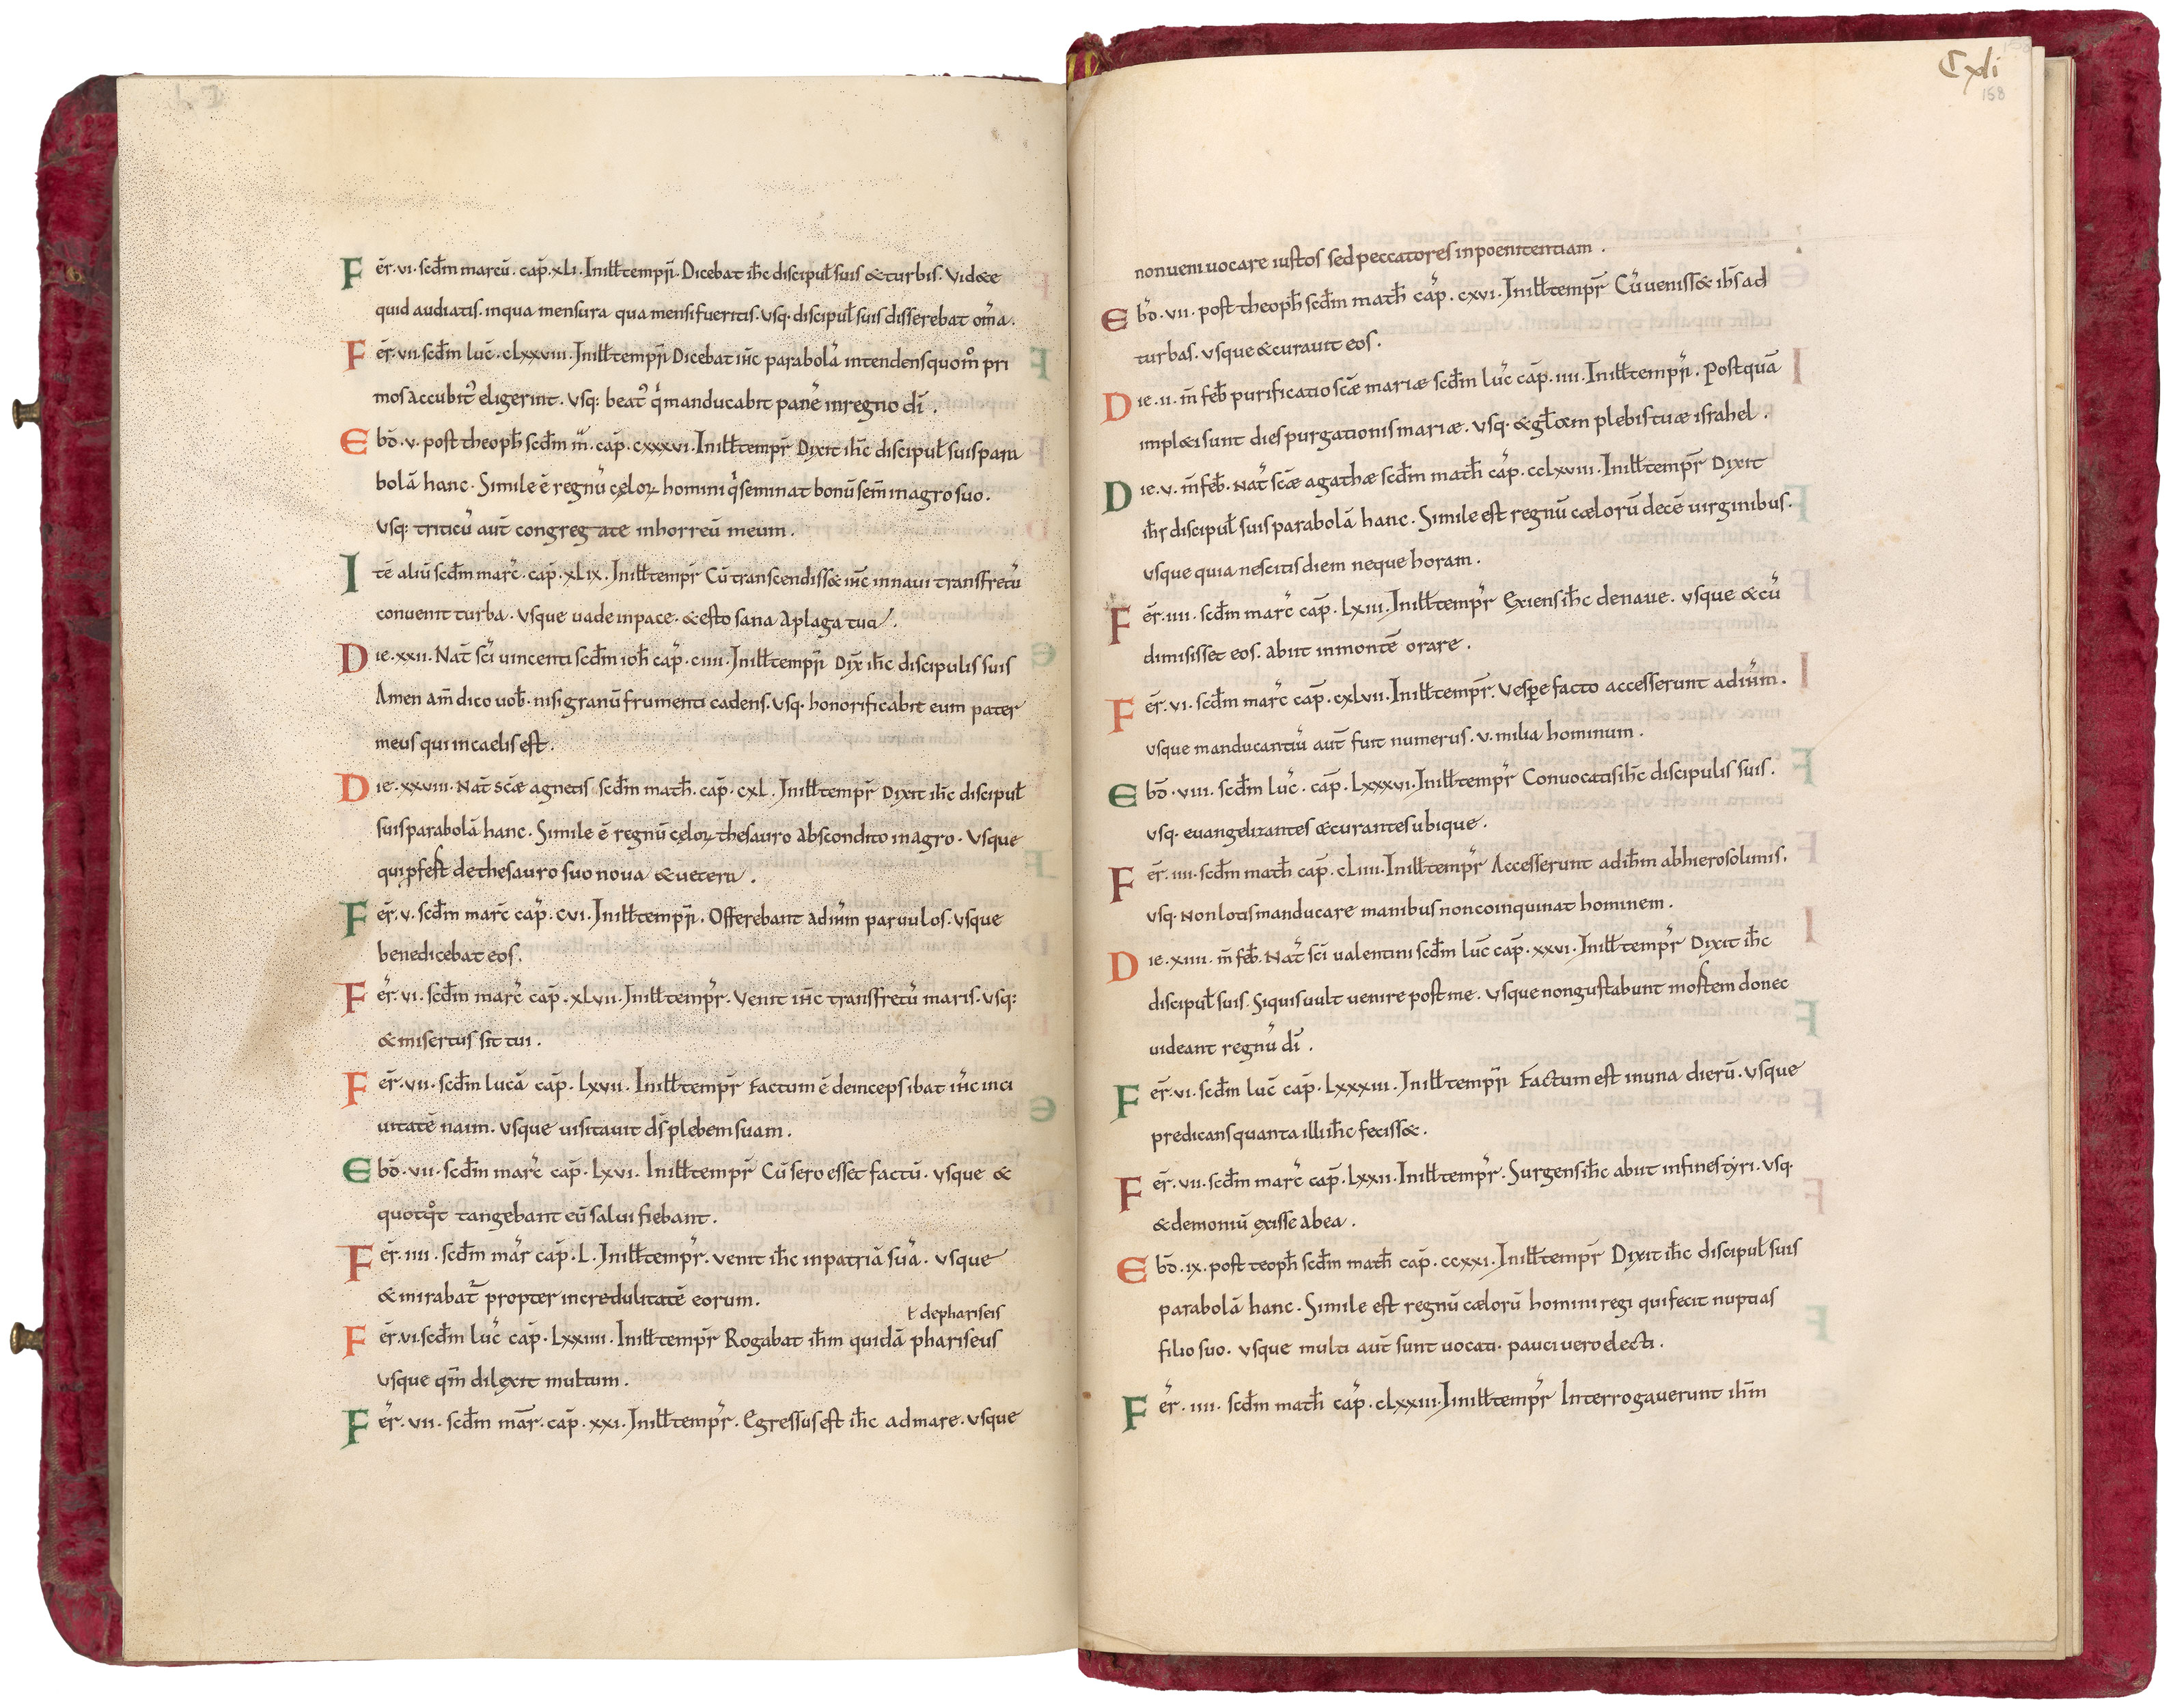 Fer̄.vi.scd̄m marcū.cap̄.xLi.Iniłł tempr̄ıı.Dicebat ih̄c discipuł suis &turbis.Vid&e
quid audiatis.inqua mensura qua mensifueritis.Usq.discipuł suis disserebat om̄a.
Fer̄.vii.scd̄m luc̄.cLxxviii.Iniłł tempr̄ıı Dicebat ih̄c parabolā intendens quom̊ pri
mos accubit᷒ eligerint.Usq: beat᷒ q̇ manducabit panē inregno dī.
Ebd̄.v.post theoph̄ scd̄m m̄.cap̄.cxxxvi.Iniłł tempr̄ Dixit ih̄c discipuł suis para
bolā hanc.Simile ē regnū cęloꝝ homini q̇ seminat bonū sem̄ inagro suo.
Usq: triticū aut̄ congregate inhorreū meum.
Itē aliū scd̄m marc̄.cap̄.xLix.Iniłł tempr̄ Cū transcendiss& ih̄c innaui transfretū
conuenit turba.Usque uade inpace.&esto sana Aplaga tua.
Die.xxii.Nat̄ sc̄i uincenti scd̄m ioh̄ cap̄.ciiii.Iniłł tempr̄ıı Dix̄ ih̄c discipulis suis
Amen am̄ dico uob̄.nisi granū frumenti cadens.Usq.honorificabit eum pater
meus qui incaelis est.
Die.xxviii.Nat̄ scǣ agnetis scd̄m math̄.cap̄.cxL.Iniłł tempr̄ Dixit ih̄c discipuł
suis parabolā hanc.Simile ē regnū cęloꝝ thesauro abscondito inagro.Usque
qui ꝓfest dethesauro suo noua &uetera.
Fer̄.v.scd̄m marc̄ cap̄.cvi.Iniłł tempr̄ıı.Offerebant adih̄m paruulos.Usque
benedicebat eos.
Fer̄.vi.scd̄m marc̄ cap̄.xLvii.Iniłł tempr̄.Venit ih̄c transfretū maris.Usq:
&misertus sit tui.
Fer̄.vii.scd̄m lucā cap̄.Lxvii.Iniłł tempr̄ Factum ē deinceps ibat ih̄c inci
uitatē naim.Usque uisitauit ds̄ plebem suam.
Ebd̄.vii.scd̄m marc̄ cap̄.Lxvi.Iniłł tempr̄ Cū sero esset factū.Usque &
quotq̊t tangebant eū salui fiebant.
Fer̄.iiii.scd̄m mar̄ cap̄.L.Iniłł tempr̄.Venit ih̄c inpatriā suā.Usque
&mirabat᷒ propter incredulitatē eorum.
ł depharisęis
Fer̄.vi.scd̄m luc̄ cap̄.Lxxiiii.Iniłł tempr̄ Rogabat ih̄m quidā phariseus
Usque qm̄ dilexit multum.
Fer̄.vii.scd̄m mār.cap̄.xxi.Iniłł tempr̄.Egressus est ih̄c admare.Usque
Cxli
158
non ueni uocare iustos sed peccatores inpoenitentiam.
Ebd̄.vii.post theoph̄ scd̄m math̄ cap̄.cxvi.Iniłł tempr̄ Cū ueniss& ih̄s ad
turbas.Usque &curauit eos.
Die.ii.m̄ feb̄ purificatio scǣ mariæ scd̄m luc̄ cap̄.iiii.Iniłł tempr̄ıı.Postquā
impl&i sunt dies purgationis mariæ.Usq.&gło͞m plebis tuæ israhel.
Die.v.m̄ feb̄.Nat̄ scǣ agathæ scd̄m math̄ cap̄.ccLxviii.Iniłł tempr̄ Dixit
ih̄s discipuł suis parabolā hanc.Simile est regnū cælorū decē uirginibus.
Usque quia nescitis diem neque horam.
Fer̄.iiii.scd̄m marc̄ cap̄.Lxiii.Iniłł tempr̄ Exiens ih̄c denaue.Usque &cū
dimisisset eos.abiit inmontē orare.
Fer̄.vi.scd̄m marc̄ cap̄.cxLvii.Iniłł tempr̄.Vesꝑe facto accesserunt adih̄m.
Usque manducantiū aut̄ fuit numerus.v.milia hominum.
Ebd̄.viii.scd̄m luc̄.cap̄.Lxxxvi.Iniłł tempr̄ Conuocatis ih̄c discipulis suis.
Usq.euangelizantes &curantes ubique.
Fer̄.iiii.scd̄m math̄ cap̄.cLiiii.Iniłł tempr̄ Accesserunt adih̄m abhierosolimis.
Usq.Nonlotis manducare manibus noncoinquinat hominem.
Die.xiiii.m̄ feb̄.Nat̄ sc̄i ualentini scd̄m luc̄ cap̄.xxvi.Iniłł tempr̄ Dixit ih̄c
discipuł suis.Siquis uult uenire post me.Usque nongustabunt mortem donec
uideant regnū dī.
Fer̄.vi.scd̄m luc̄ cap̄.Lxxxiii.Iniłł tempr̄ıı Factum est inuna dierū.Usque
predicans quanta illi ih̄c feciss&.
Fer̄.vii.scd̄m marc̄ cap̄.Lxxii.Iniłł tempr̄.Surgens ih̄c abiit infines tẏri.Usq.
&demoniū exisse abea.
Ebd̄.ix.post teoph̄ scd̄m math̄ cap̄.ccxxi.Iniłł tempr̄ Dixit ih̄c discipuł suis
parabolā hanc.Simile est regnū cælorū homini regi qui fecit nuptias
filio suo.Usque multi aut̄ sunt uocati.pauci uero electi.
Fer̄.iiii.scd̄m math̄ cap̄.cLxxiii.Iniłł tempr̄ Interrogauerunt ih̄m